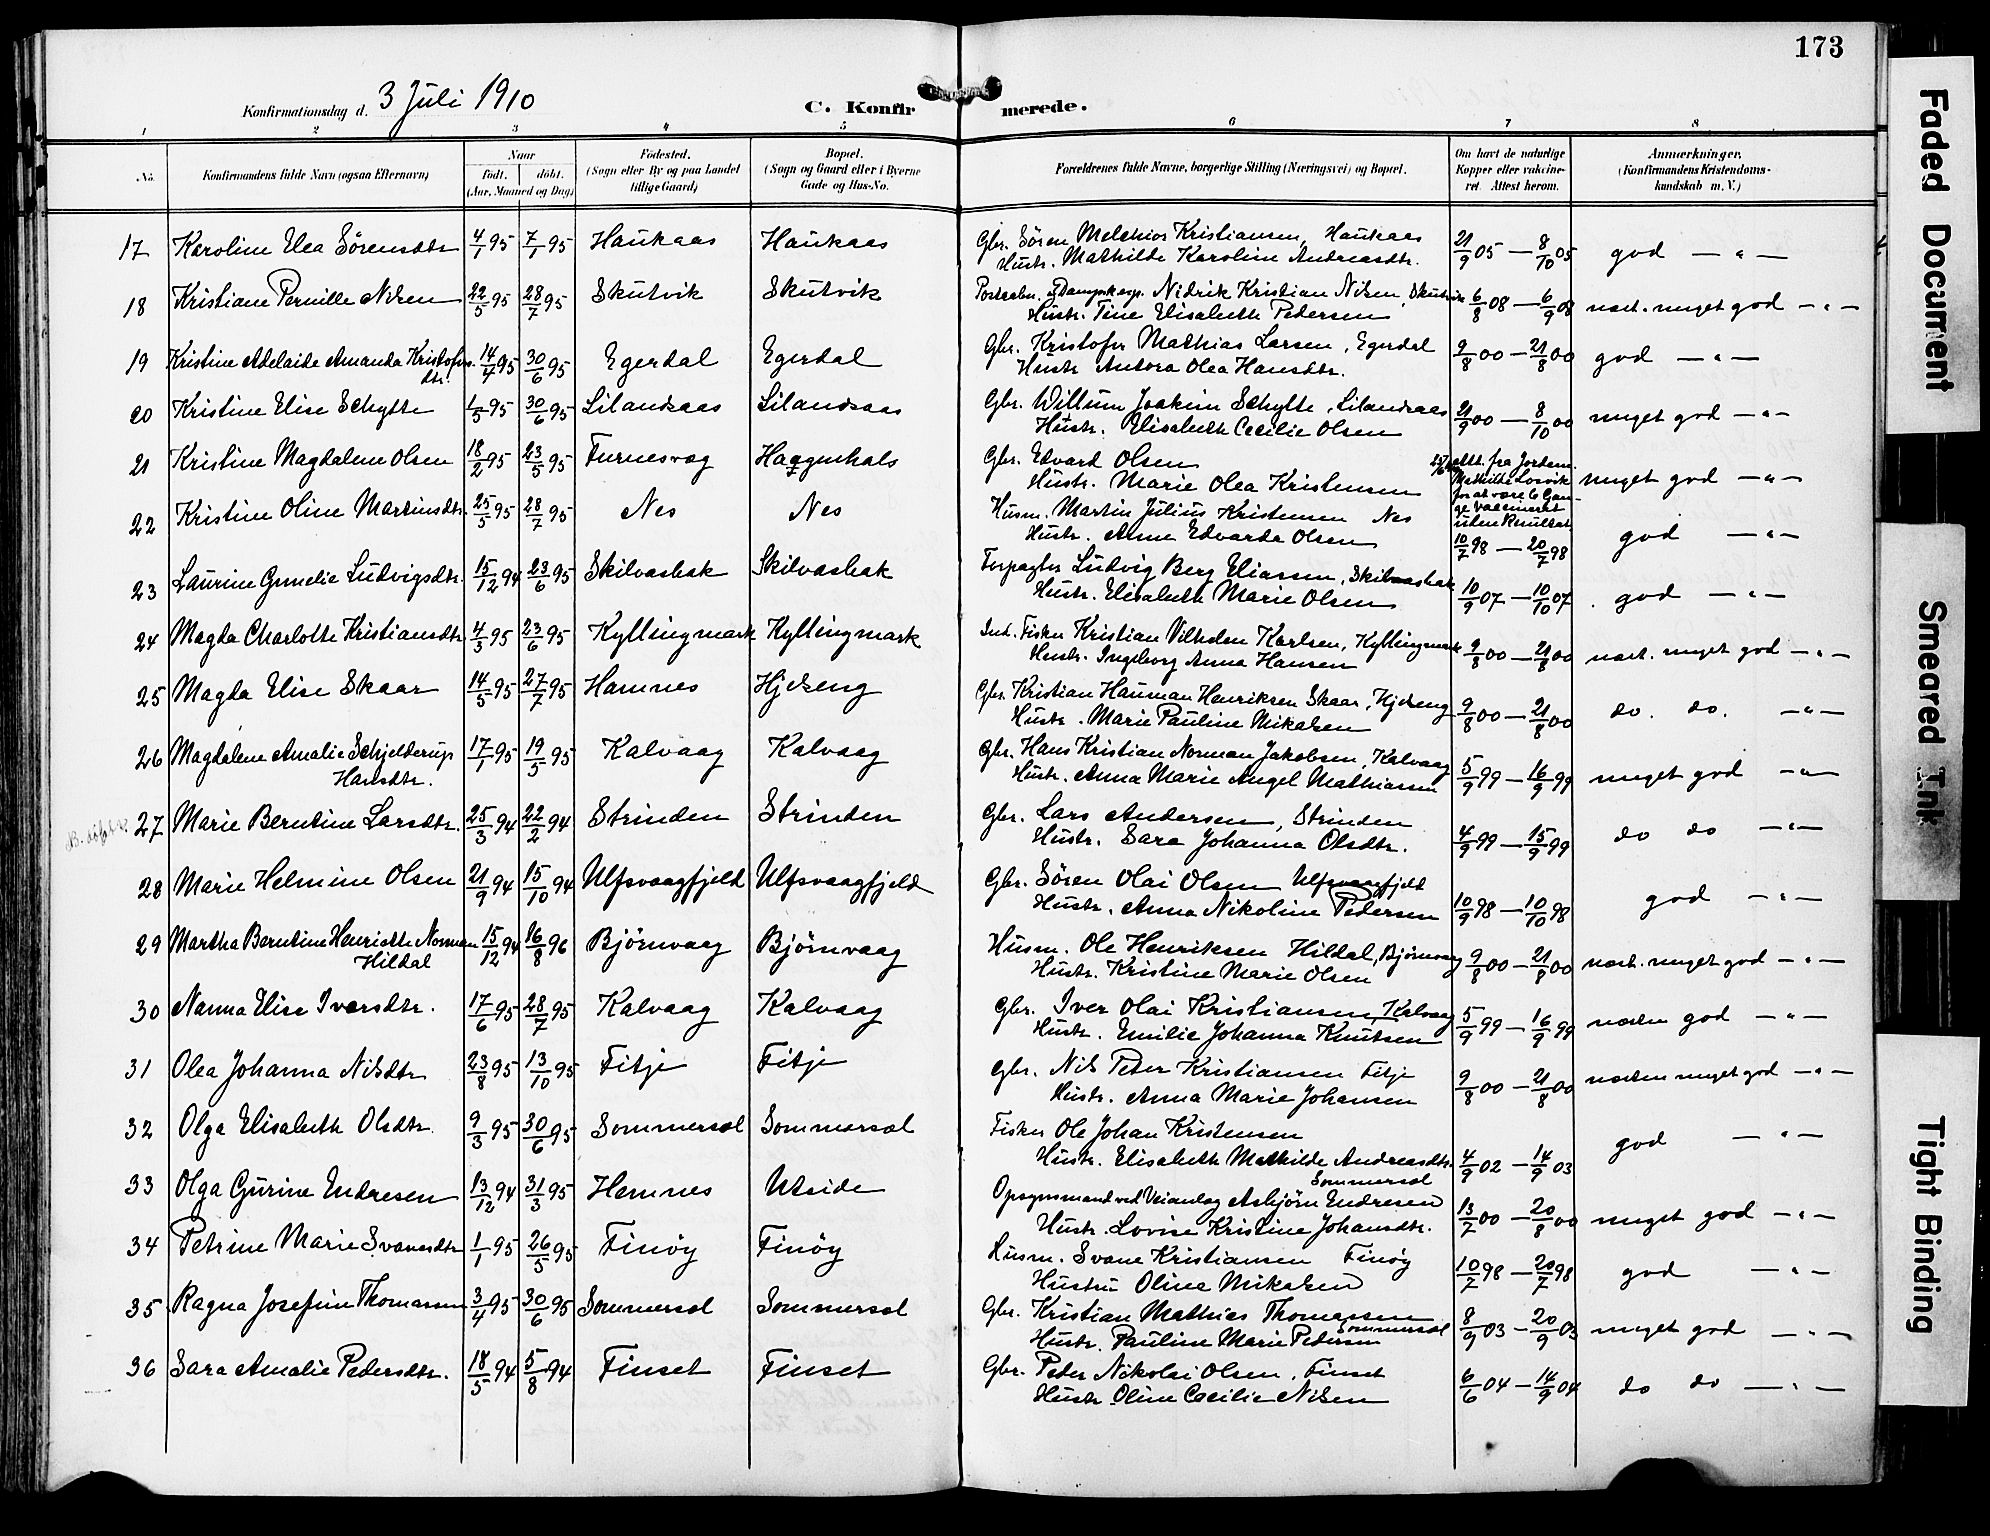 173
Konfirmationsdag d. 3 Juli 1910
C. Konfirmerede.
1 2 3 4 5 6 7 8
No. Konfirmandens fulde Navn (ogsaa Efternavn) Naar født. døbt. (Aar, Maaned og Dag) Fødested. (Sogn eller By og paa Landet tillige Gaard) Bopæl. (Sogn og Gaard eller i Byerne Gade og Hus-No. Forældrenes fulde Navne, borgerlige Stilling (Næringsvei) og Bopæl. Om havt de naturlige Kopper eller vakcineret. Attest herom. Anmærkninger, (Konfirmandens Kristendomskundskab m. V.)
17 Karoline Elea Sörensdtr 4/1 95 7/1 95 Haukaas Haukaas Gbr. Sören Melchior Kristiansen, Haukaas 21/9 05 — 8/10 05 god — " —
Hustr. Mathilde Karoline Andreasdtr.
18 Kristiane Pernille Nilsen 22/5 95 28/7 95 Skutvik Skutvik Postaabn. og Dampsk.exp. Nidrik Kristian Nilsen, Skutvik 6/8 08 — 6/9 08 næst. meget god — " —
Hustr. Tine Elisabeth Pedersen
19 Kristine Adelaide Amanda Kristofersdtr. 14/4 95 30/6 95 Egerdal Egerdal Gbr. Kristofer Mathias Larsen, Egerdal 9/8 00 — 21/8 00 god — " —
Hustr Antora Olea Hansdtr.
20 Kristine Elise Schytte 1/5 95 30/6 95 Lilandsaas Lilandsaas Gbr. Willum Joakim Schytte, Lilandsaas 21/9 00 — 8/10 00 meget god — " —
Hustr. Elisabeth Cecilie Olsen
21 Kristine Magdalene Olsen 18/2 95 23/5 95 Furnesvag Haggenhals Gbr. Edvard Olsen att. fra Jordem. Mathilde Losvik for at være 6 Gange vaccineret uden Resultat meget god — " —
Hustr. Marie Olea Kristensen
22 Kristine Oline Martinsdtr. 25/5 95 28/7 95 Nes Nes Husm. Martin Julius Kristensen Nes 10/7 98 — 20/7 98 god — " —
Hustr. Anne Edvarda Olsen
23 Laurine Gunelie Ludvigsdtr. 15/12 94 23/6 95 Skilvasbak Skilvasbak Forpagter Ludvig Berg Eliassen, Skilvasbak 10/9 07 — 10/10 07 god — " —
Hustr. Elisabeth Marie Olsen
24 Magda Charlotte Kristiansdtr. 4/3 95 23/6 95 Kyllingmark Kyllingmark Ind. Fisker Kristian Vilhelm Karlsen, Kyllingmark 9/8 00 — 21/8 00 næst. meget god — " —
Hustr. Ingeborg Anna Hansen
25 Magda Elise Skaar 14/5 95 27/7 95 Hamnes Hjelseng Gbr. Kristian Hauman Henriksen Skaar, Hjelseng 9/8 00 — 21/8 00 do. do. — " —
Hustr. Marie Pauline Mikalsen
26 Magdalene Amalie Schjelderup Hansdtr. 17/1 95 19/5 95 Kalvaag Kalvaag Gbr. Hans Kristian Norman Jakobsen, Kalvaag 5/9 99 — 16/9 99 meget god — " —
Hustr. Anna Marie Angel Mathiassen
27 Marie Berntine Larsdtr. 25/3 94 22/2 94 Strinden Strinden Gbr. Lars Andersen, Strinden 4/9 99 — 15/9 99 do do — " —
Hustr. Sara Johanna Olsdtr.
28 Marie Helmine Olsen 21/9 94 15/10 94 Ulfsvaagfjeld Ulfsvaagfjeld Gbr. Sören Olai Olsen Ulfsvaagfjeld 10/9 98 — 10/10 98 god — " —
Hustr. Anna Nikoline Pedersen
29 Martha Berntine Henriette Norman Hildal 15/12 94 16/8 96 Björnvaag Björnvaag Husm. Ole Henriksen Hildal, Björnvaag 9/8 00 — 21/8 00 næst. meget god — " —
Hustr. Kristine Marie Olsen
30 Nanna Elise Iversdtr. 17/6 95 28/7 95 Kalvaag Kalvaag Gbr. Iver Olai Kristiansen, Kalvaag 5/9 99 — 16/9 99 næsten god — " —
Hustr. Emilie Johanna Knutsen
31 Olea Johanna Nilsdtr 23/8 95 13/10 95 Fitje Fitje Gbr. Nils Peter Kristiansen Fitje 9/8 00 — 21/8 00 næsten meget god — " —
Hustr. Anna Marie Johansen
32 Olga Elisabeth Olsdtr. 9/3 95 30/6 95 Sommersel Sommersel Fisker Ole Johan Kristensen 4/9 02 — 14/9 03 god — " —
Hustr. Elisabeth Mathilde Andreasdtr. Sommersel
33 Olga Gurine Endresen 13/12 94 31/3 95 Hamnes Utside Opsynsmand ved Veianlæg Asbjörn Endresen 13/7 00 — 20/8 00 meget god — " —
Hustr. Lovise Kristine Johansdtr.
34 Petrine Marie Svanesdtr 1/1 95 26/5 95 Finöy Finöy Husm. Svane Kristiansen Finöy 10/7 98 — 20/7 98 god — " —
Hustru Oline Mikalsen
35 Ragna Josefine Thomassen 3/4 95 30/6 95 Sommersel Sommersel Gbr. Kristian Mathias Thomassen Sommersel 8/9 03 — 20/9 03 meget god — " —
Hustr. Pauline Marie Pedersen
36 Sara Amalie Pedersdtr. 18/5 94 5/8 94 Finset Finset Gbr. Peder Nikolai Olsen, Finset 6/6 04 — 14/9 04 do do — " —
Hustr. Oline Cecilie Nilsen
Faded Document
Smeared Ink
Tight Binding